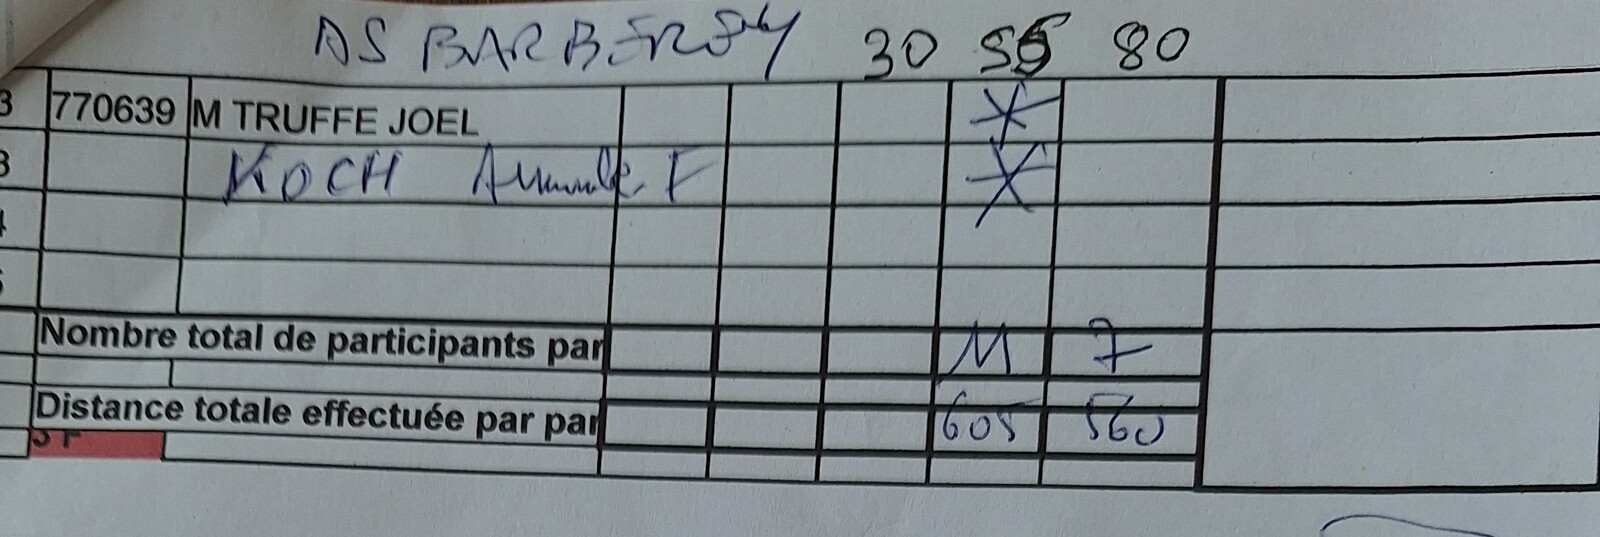 AS BARBEREY 30 55 80
3 770639 M TRUFFE JOEL
3 KOCH F
4
Nombre total de participants par 11 7
Distance totale effectuée par par 605 560